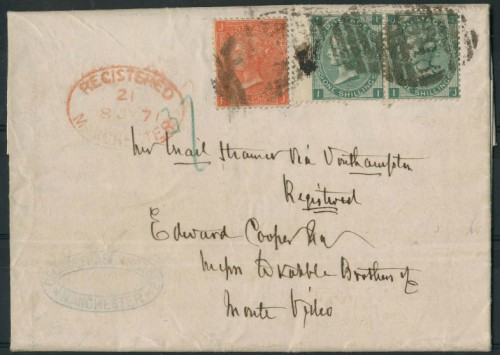 REGISTERED
21
71
MANCHESTER
ONE SHILLING
ONE SHILLING
per Mail Steamer via Southampton
Registered
Edward Cooper Esq
Messrs Brothers
Monte Video
MANCHESTER